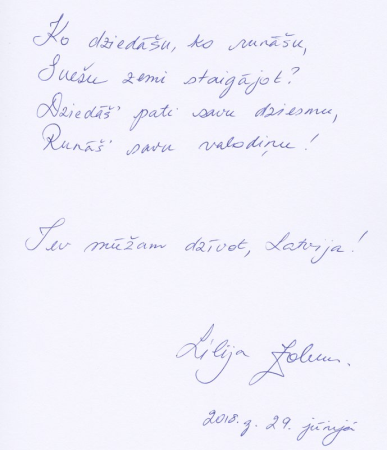 Ko dziedāšu, ko runāšu,
Svešu zemi staigājot?
Dziedāš' pati savu dziesmu,
Runāš' savu valodiņu!
Tev mūžam dzīvot, Latvija!
Lilija
2018. g. 29. jūnijā